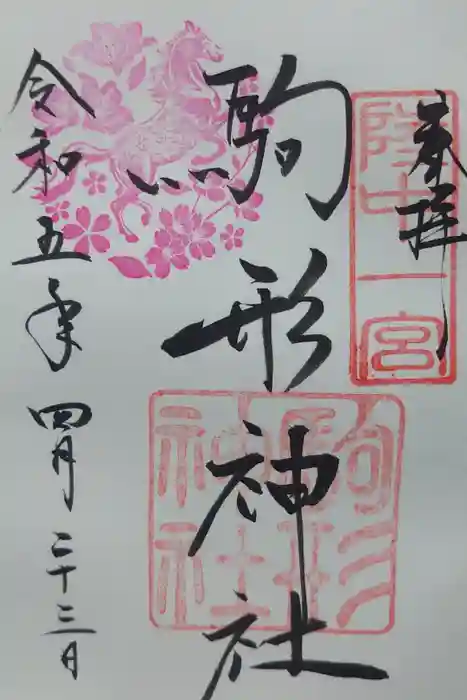 奉拝
陸中一宮
駒形神社
駒形神社
令和五年四月二十三日